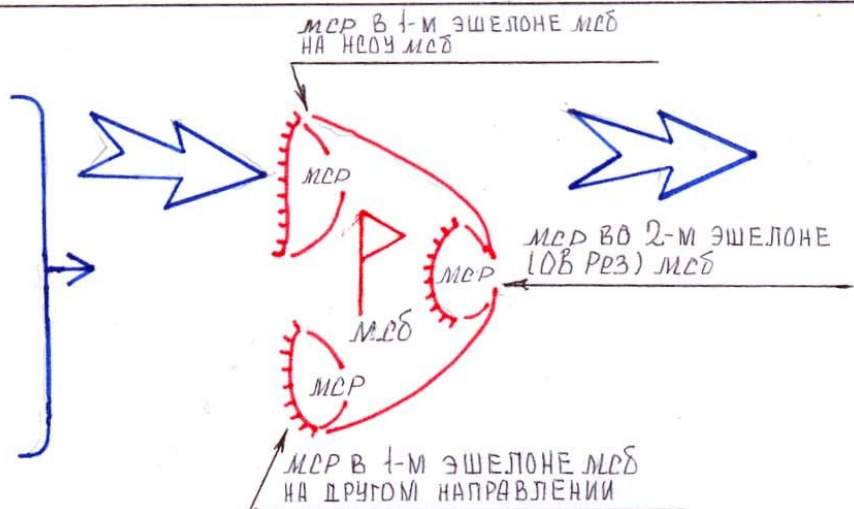 МСР В 1-М ЭШЕЛОНЕ МСб
НА НСОУ МСб
МСР
МСР ВО 2-М ЭШЕЛОНЕ
(ОВ РЕЗ) МСб
МСР
МСб
МСР
МСР В 1-М ЭШЕЛОНЕ МСб
НА ДРУГОМ НАПРАВЛЕНИИ